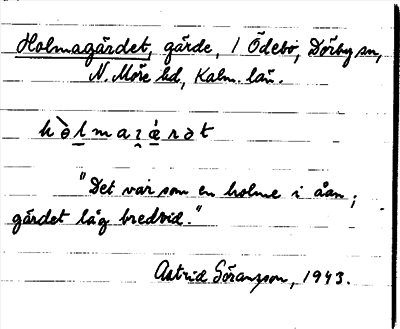 Holmagärdet, gärde, 1 Ödebo, Dörby sn,
N. Möre hd, Kalm. län.
"Det var som en holme i åan;
gärdet låg bredvid."
Astrid Göransson, 1943.